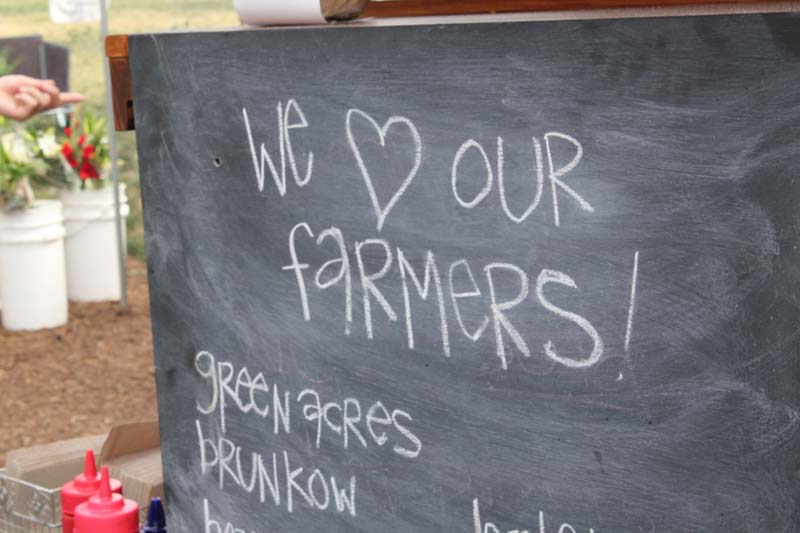 We ♡ OUR
farmers!
green acres
brunkow